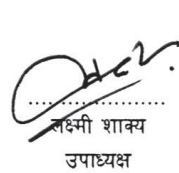 ....................
लक्ष्मी शाक्य
उपाध्यक्ष